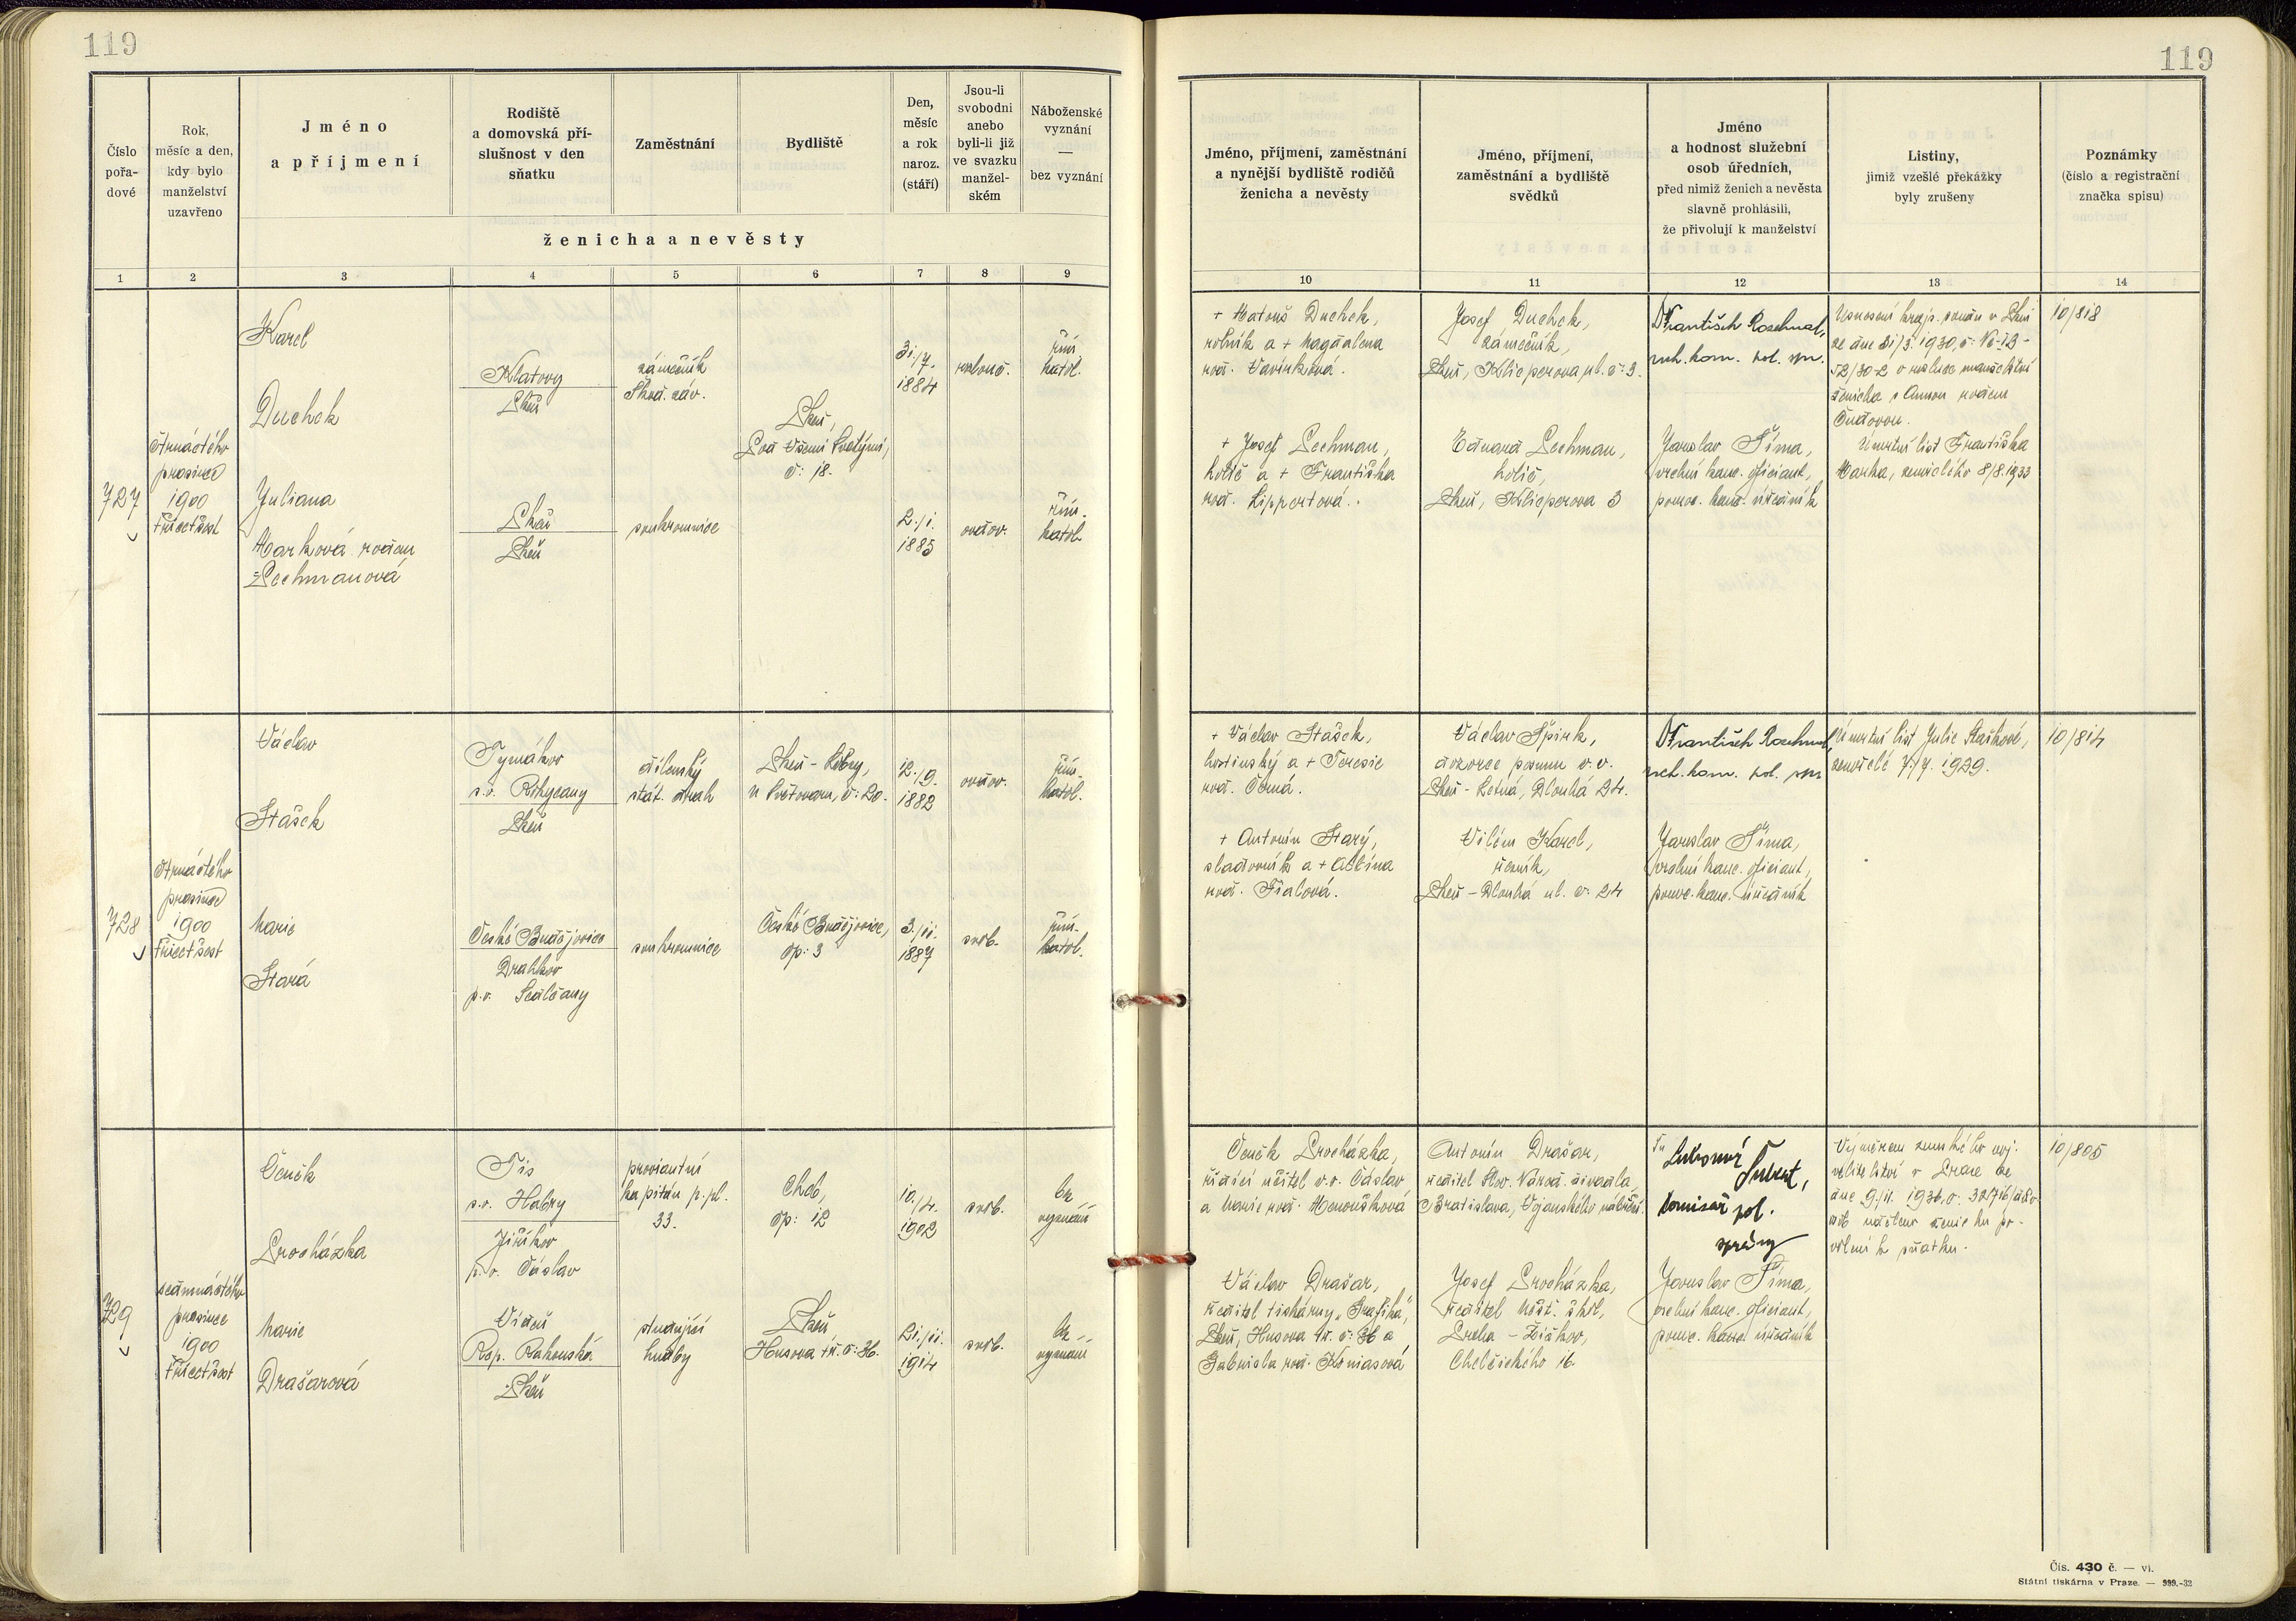 119
Číslo
pořa-
dové
Rok,
měsíc a den,
kdy bylo
manželství
uzavřeno
Jméno
a příjmení
Rodiště
a domovská pří-
slušnost v den
sňatku
Zaměstnání
Bydliště
Den,
měsíc
a rok
naroz.
(stáří)
Jsou-li
svobodni
anebo
byli-li již
ve svazku
manžel-
ském
Náboženské
vyznání
—
bez vyznání
ženicha a nevěsty
1 2 3 4 5 6 7 8 9
727
čtrnáctého
prosince
1900
třicetšest
Karel
Duchek
Juliana
Marková rozen
Pechmanová
Klatovy
Plzeň
Plzeň
Plzeň
zámečník
Škod. záv.
soukromnice
Plzeň,
Pod Všemi Svatými,
č: 18.
31./7.
1884
2./1.
1885
rozlouč.
ovdov.
řím.
katol.
řím.
katol.
728
čtrnáctého
prosince
1900
třicetšest
Václav
Stašek
Marie
Stará
Tymákov
s.o. Rokycany
Plzeň
České Budějovice
Drahkov
p.o. Sedlčany
dílenský
stát. drah
soukromnice
Plzeň - Lobzy,
u Světovaru, č: 20.
České Budějovice,
čp: 3
12./9.
1882
3./11.
1887
ovdov.
svob.
řím.
katol.
řím.
katol.
729
sedmnáctého
prosince
1900
třicetšest
Čeněk
Procházka
Marie
Drašarová
Tis
s.o. Habry
Jiříkov
p.o. Čáslav
Vídeň
Rep. Rakouská
Plzeň
proviantní
kapitán p. pl.
33.
studující
hudby
Cheb,
čp: 12
Plzeň
Husova tř. č: 36.
10./4.
1902
21./11.
1914
svob.
svob.
bez
vyznání
bez
vyznání
119
Jméno, příjmení, zaměstnání
a nynější bydliště rodičů
ženicha a nevěsty
Jméno, příjmení,
zaměstnání a bydliště
svědků
Jméno
a hodnost služební
osob úředních,
před nimiž ženich a nevěsta
slavně prohlásili,
že přivolují k manželství
Listiny,
jimiž vzešlé překážky
byly zrušeny
Poznámky
(číslo a registrační
značka spisu)
10 11 12 13 14
+ Matouš Duchek,
rolník a + Magdalena
roz. Vavříková.
+ Josef Pechman,
holič a + Františka
roz. Lippertová.
Josef Duchek,
zámečník,
Plzeň, Klicperova ul. č: 3.
Eduard Pechman,
holič,
Plzeň, Klicperova 3
František
rch. kom. pol. spr.
Jaroslav Šíma,
vrchní kanc. oficiant,
pomoc. kanc. úředník
Usnesení krajs. soudu v Plzni
ze dne 31/3. 1930,
52/30-2 o rozluce manželství
ženicha s Annou rozenu
Úmrtní list Františka
Marka, zemřelého 8/8. 1933
10/818
+ Václav Stašek,
hostinský a + Terezie
roz. Černá.
+ Antonín Starý,
sladovník a + Albína
roz. Fialová.
Václav Špirk,
dozorce v.v.
Plzeň - Letná, Dlouhá 24.
Vilém Karel,
řezník,
Plzeň - Dlouhá ul. č: 24
František
rch. kom. pol. spr.
Jaroslav Šíma,
vrchní kanc. oficiant,
pomoc. kanc. úředník
Úmrtní list Julie Staškové,
zemřelé 7./7. 1929.
10/814
Čeněk Procházka,
řídící učitel v.v. Čáslav
a Marie roz.
Václav Drašar,
ředitel tiskárny „Grafika",
Plzeň, Husova tř. č: 36 a
Gabriela roz. Koniasová
Antonín Drašar,
ředitel Slov. Národ. divadla,
Bratislava, Vajanského nábřeží.
Josef Procházka,
ředitel měšť. škol,
Praha - Žižkov,
Chelčického 16.
Lubomír Šubert,
komisař pol.
správy
Jaroslav Šíma,
vrchní kanc. oficiant,
pomoc. kanc. úředník
Výnosem zemského voj.
velitelství v Praze ze
dne 9./11. 1936, č.
uděleno ženichu po-
volení k sňatku.
10/805
Čís. 430 č. — vi.
Státní tiskárna v Praze. — 999.-32